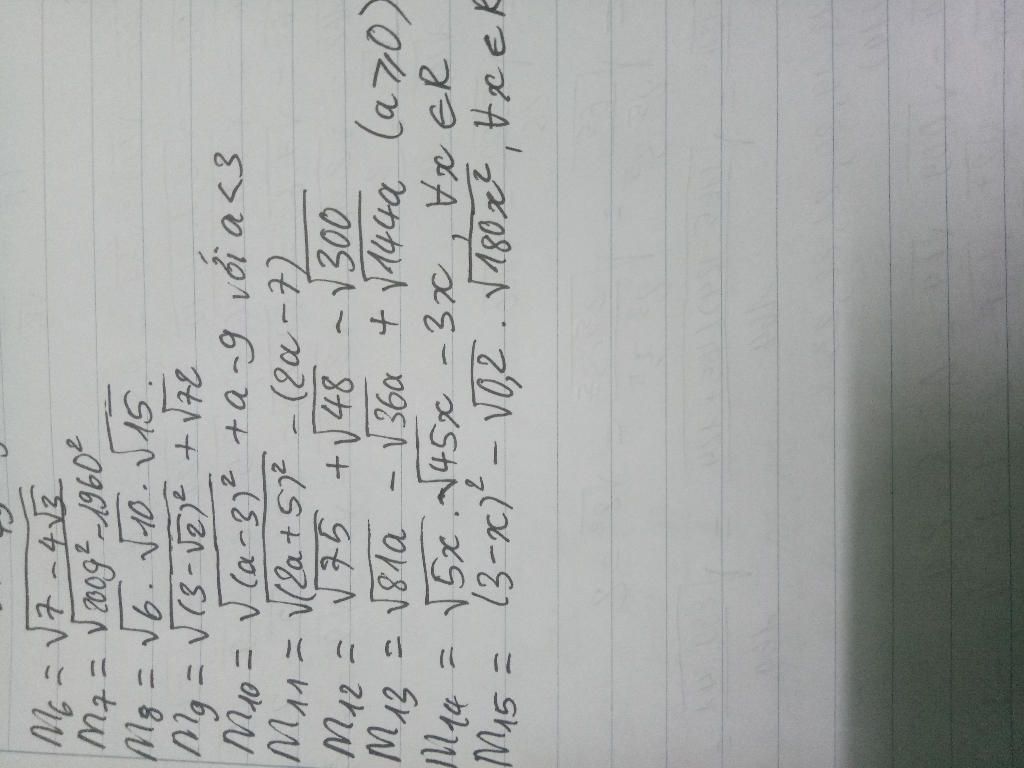 M₆ = √(7 - 4√3)
M₇ = √(2009² - 1960²)
M₈ = √6 . √10 . √15.
M₉ = √((3 - √2)²) + √72
M₁₀ = √((a - 3)²) + a - 9 với a < 3
M₁₁ = √((2a + 5)²) - (2a - 7)
M₁₂ = √75 + √48 - √300
M₁₃ = √81a - √36a + √144a (a ≥ 0)
M₁₄ = √5x . √45x - 3x, ∀x ∈ R
M₁₅ = (3 - x)² - √0,2 . √180x², ∀x ∈ R